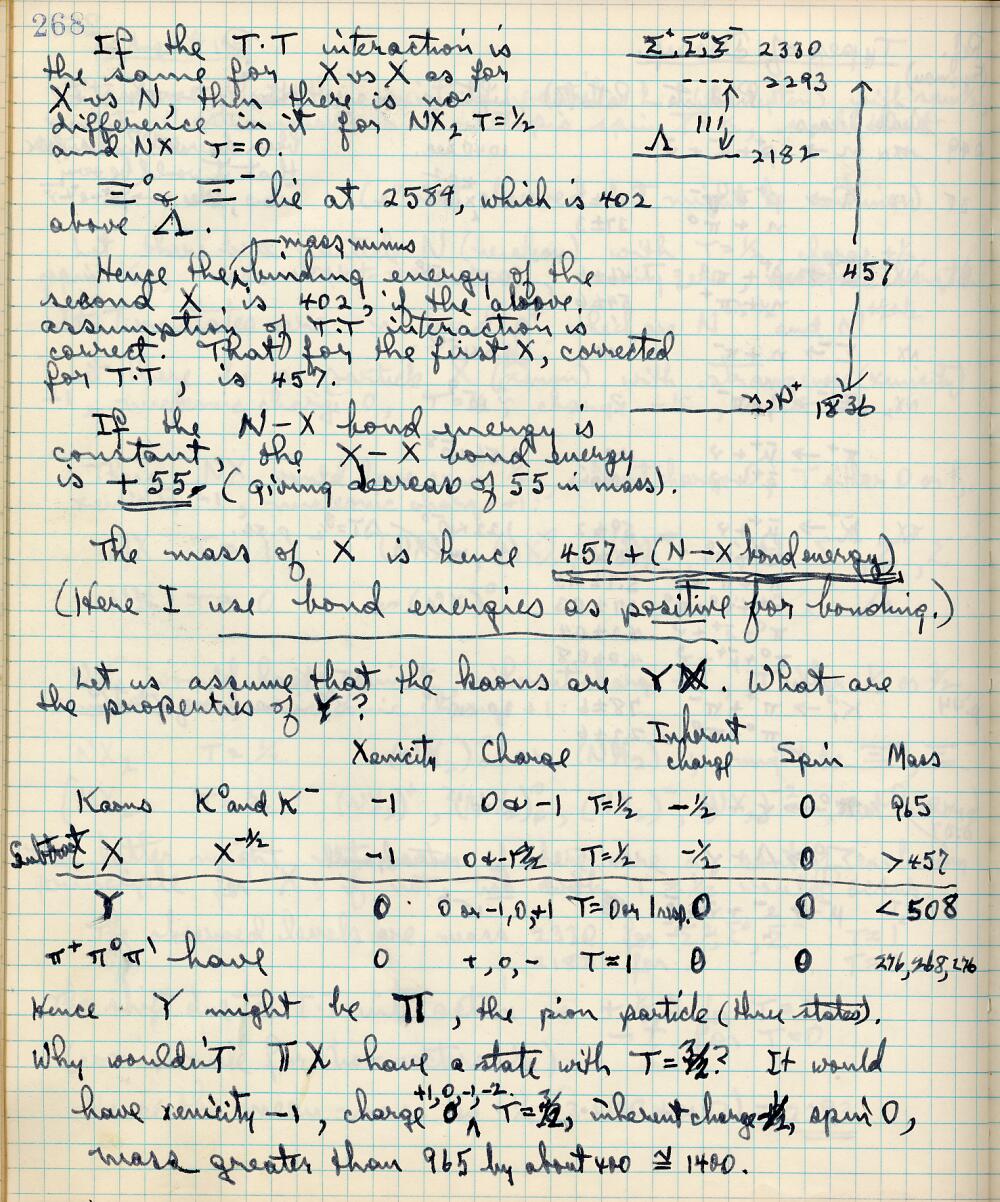 268
If the T·T interaction is
the same for X vs X as for
X vs N, then there is no
difference in it for NX₂ T=½
and NX T=0.
Σ⁺,Σ⁰,Σ⁻ 2330
2293
111
Λ 2182
457
n, p⁺ 1836
Ξ⁰ & Ξ⁻ lie at 2584, which is 402
above Λ.
mass minus
Hence the binding energy of the
second X is 402, if the above
assumption of T·T interaction is
correct. That for the first X, corrected
for T·T, is 457.
If the N–X bond energy is
constant, the X–X bond energy
is +55. (giving decrease of 55 in mass).
The mass of X is hence 457+(N–X bond energy)
(Here I use bond energies as positive for bonding.)
Let us assume that the kaons are YX. What are
the properties of Y?
Xenicity Charge Inherent charge Spin Mass
Kaons K⁰ and K⁻ -1 0 & -1 T=½ -½ 0 965
Subtract X X^-½ -1 0 & -1 T=½ -½ 0 >457
Y 0 0 or -1,0,+1 T=0 or 1 resp. 0 0 <508
π⁺ π⁰ π⁻ have 0 +,0,- T=1 0 0 276, 268, 276
Hence Y might be Π, the pion particle (three states).
Why wouldn't ΠX have a state with T=3/2? It would
have xenicity -1, charge +1,0,-1,-2. T=3/2, inherent charge -½, spin 0,
mass greater than 965 by about 400 ≅ 1400.